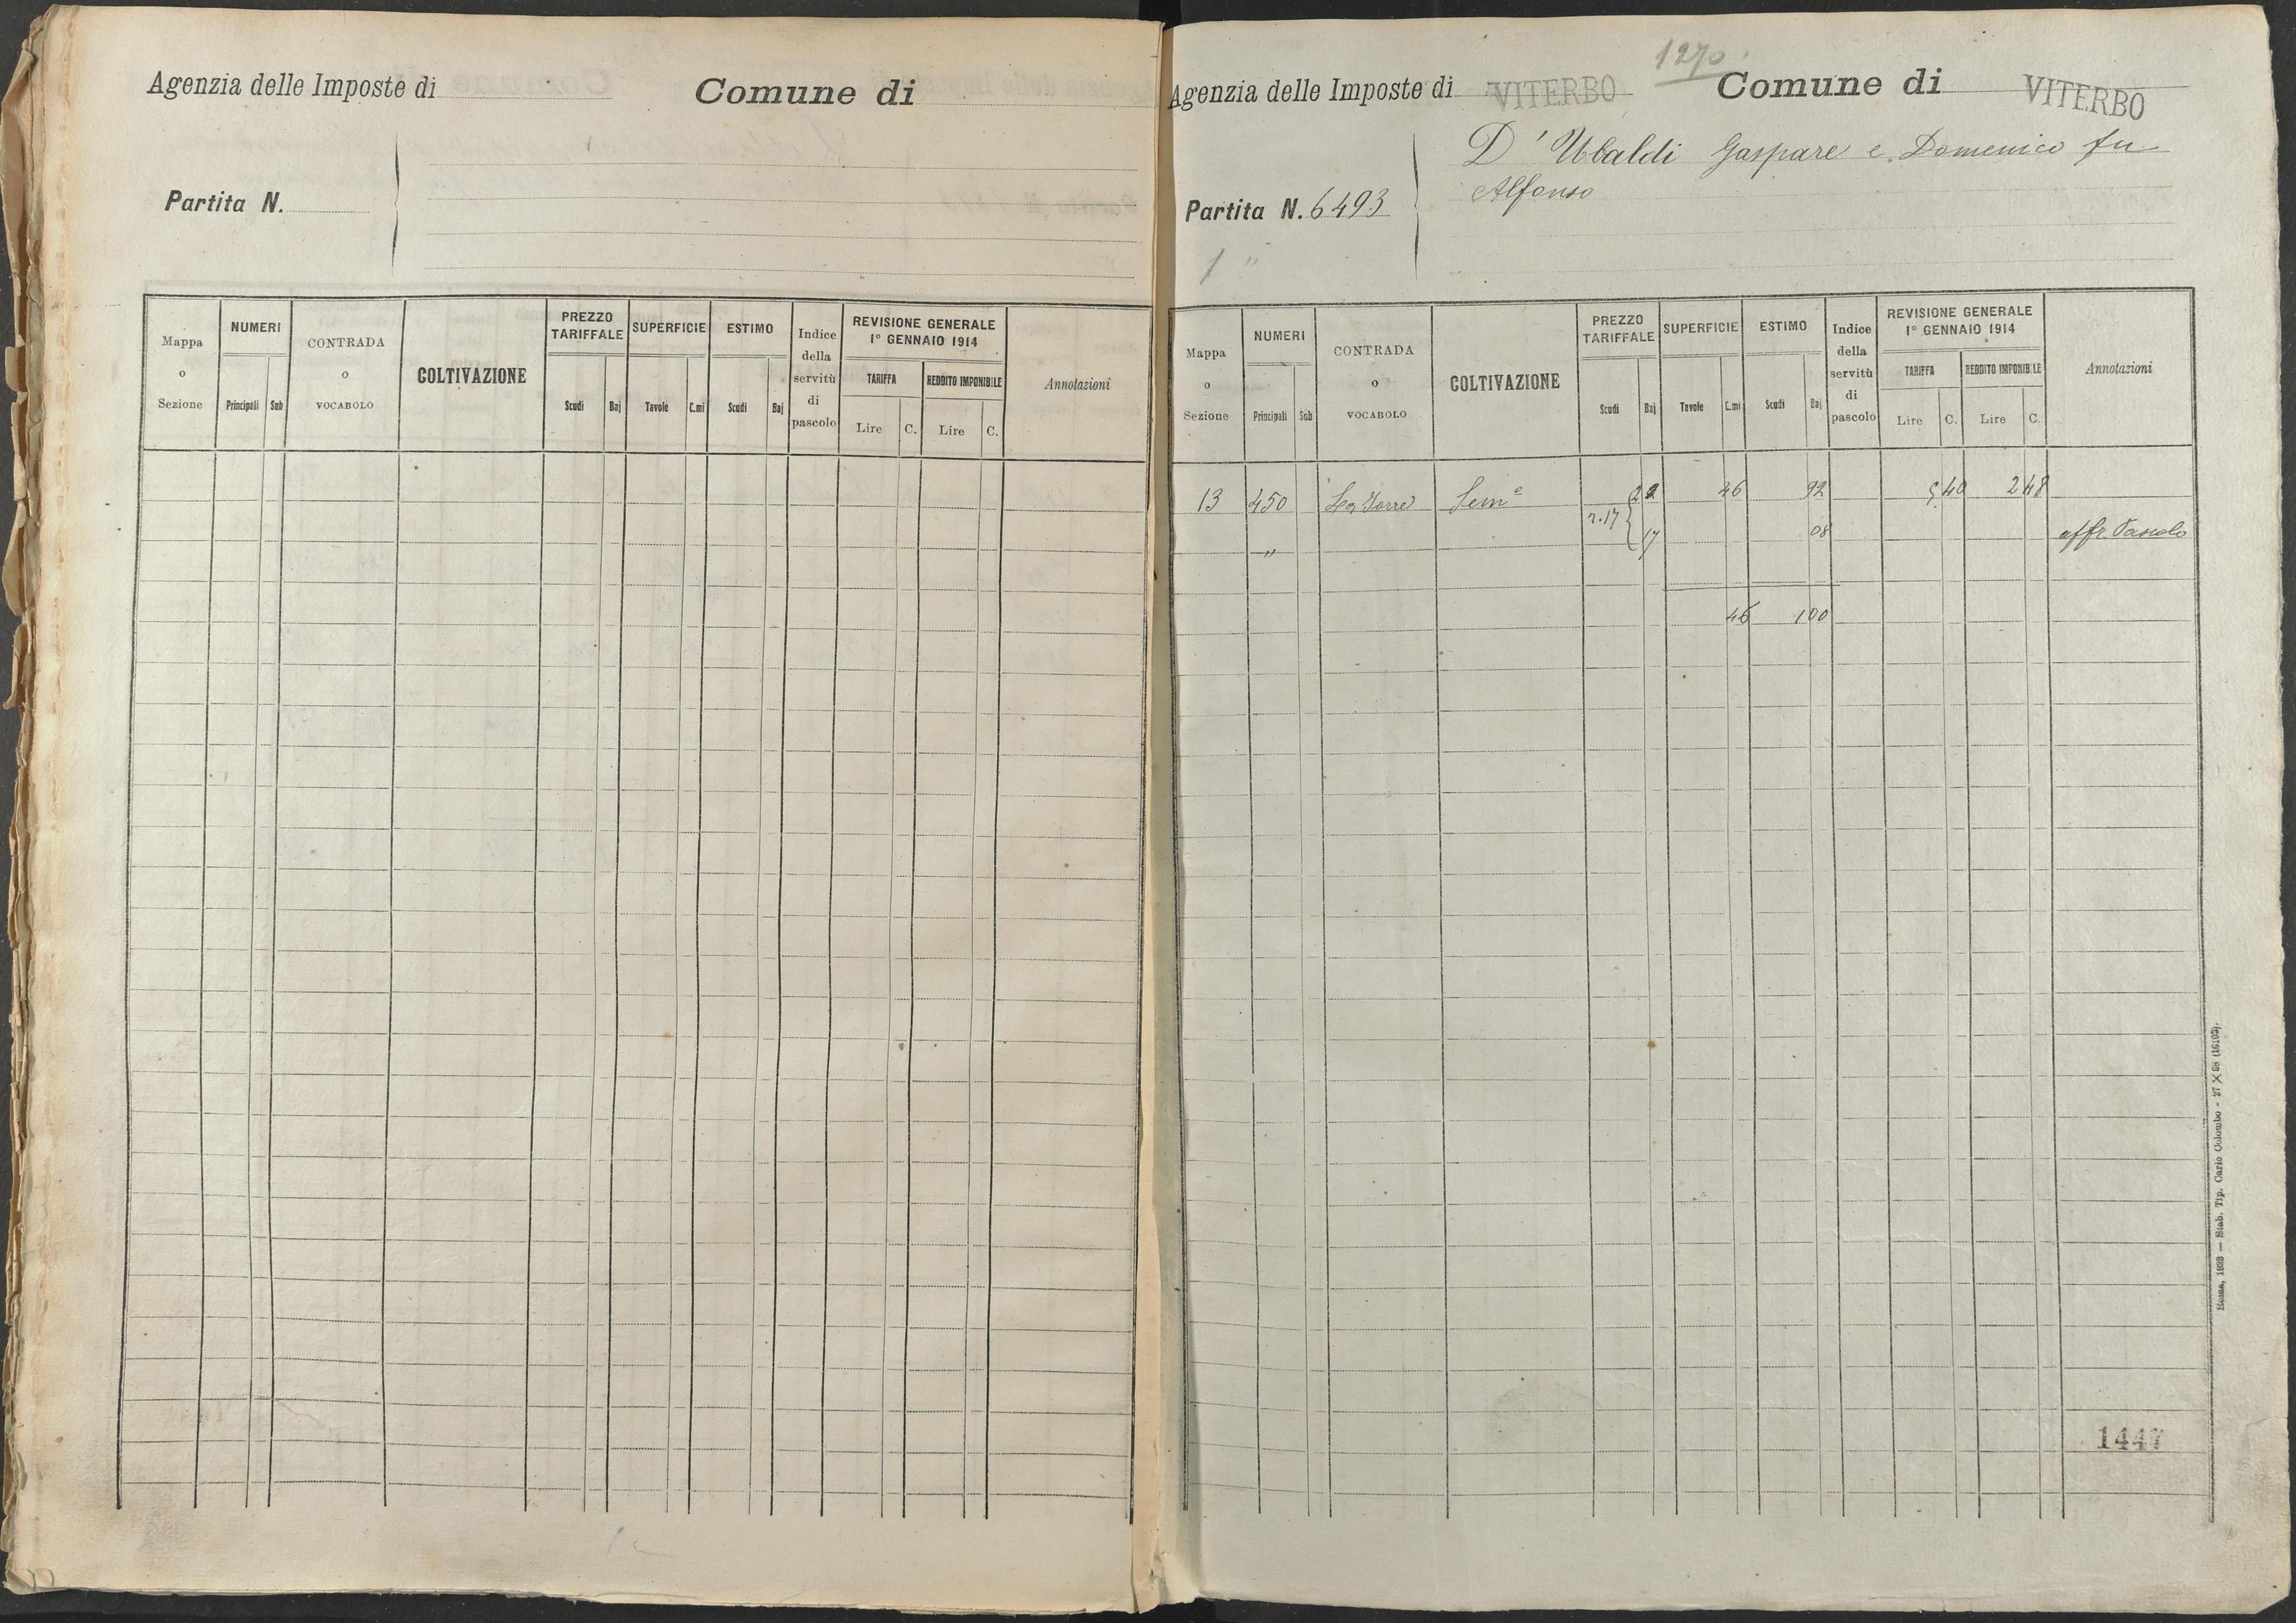 Agenzia delle Imposte di
Comune di
Partita N.
Mappa o Sezione
NUMERI
Principali
Sub
CONTRADA o VOCABOLO
COLTIVAZIONE
PREZZO TARIFFALE
Scudi
Baj
SUPERFICIE
Tavole
C.mi
ESTIMO
Scudi
Baj
Indice della servitù di pascolo
REVISIONE GENERALE
1° GENNAIO 1914
TARIFFA
REDDITO IMPONIBILE
Lire
C.
Lire
C.
Annotazioni
1270
Agenzia delle Imposte di VITERBO
Comune di VITERBO
D'Ubaldi Gaspare e Domenico fu
Alfonso
Partita N. 6493
1 "
Mappa o Sezione
NUMERI
Principali
Sub
CONTRADA o VOCABOLO
COLTIVAZIONE
PREZZO TARIFFALE
Scudi
Baj
SUPERFICIE
Tavole
C.mi
ESTIMO
Scudi
Baj
Indice della servitù di pascolo
REVISIONE GENERALE
1° GENNAIO 1914
TARIFFA
REDDITO IMPONIBILE
Lire
C.
Lire
C.
Annotazioni
13 450 La Torre Seme 2.17 { 2 46 92 5 40 2 48
" 17 08 affr. Pascolo
46 100
Roma, 1923 — Stab. Tip. Carlo Colombo - 27 X 68 (16103).
1447